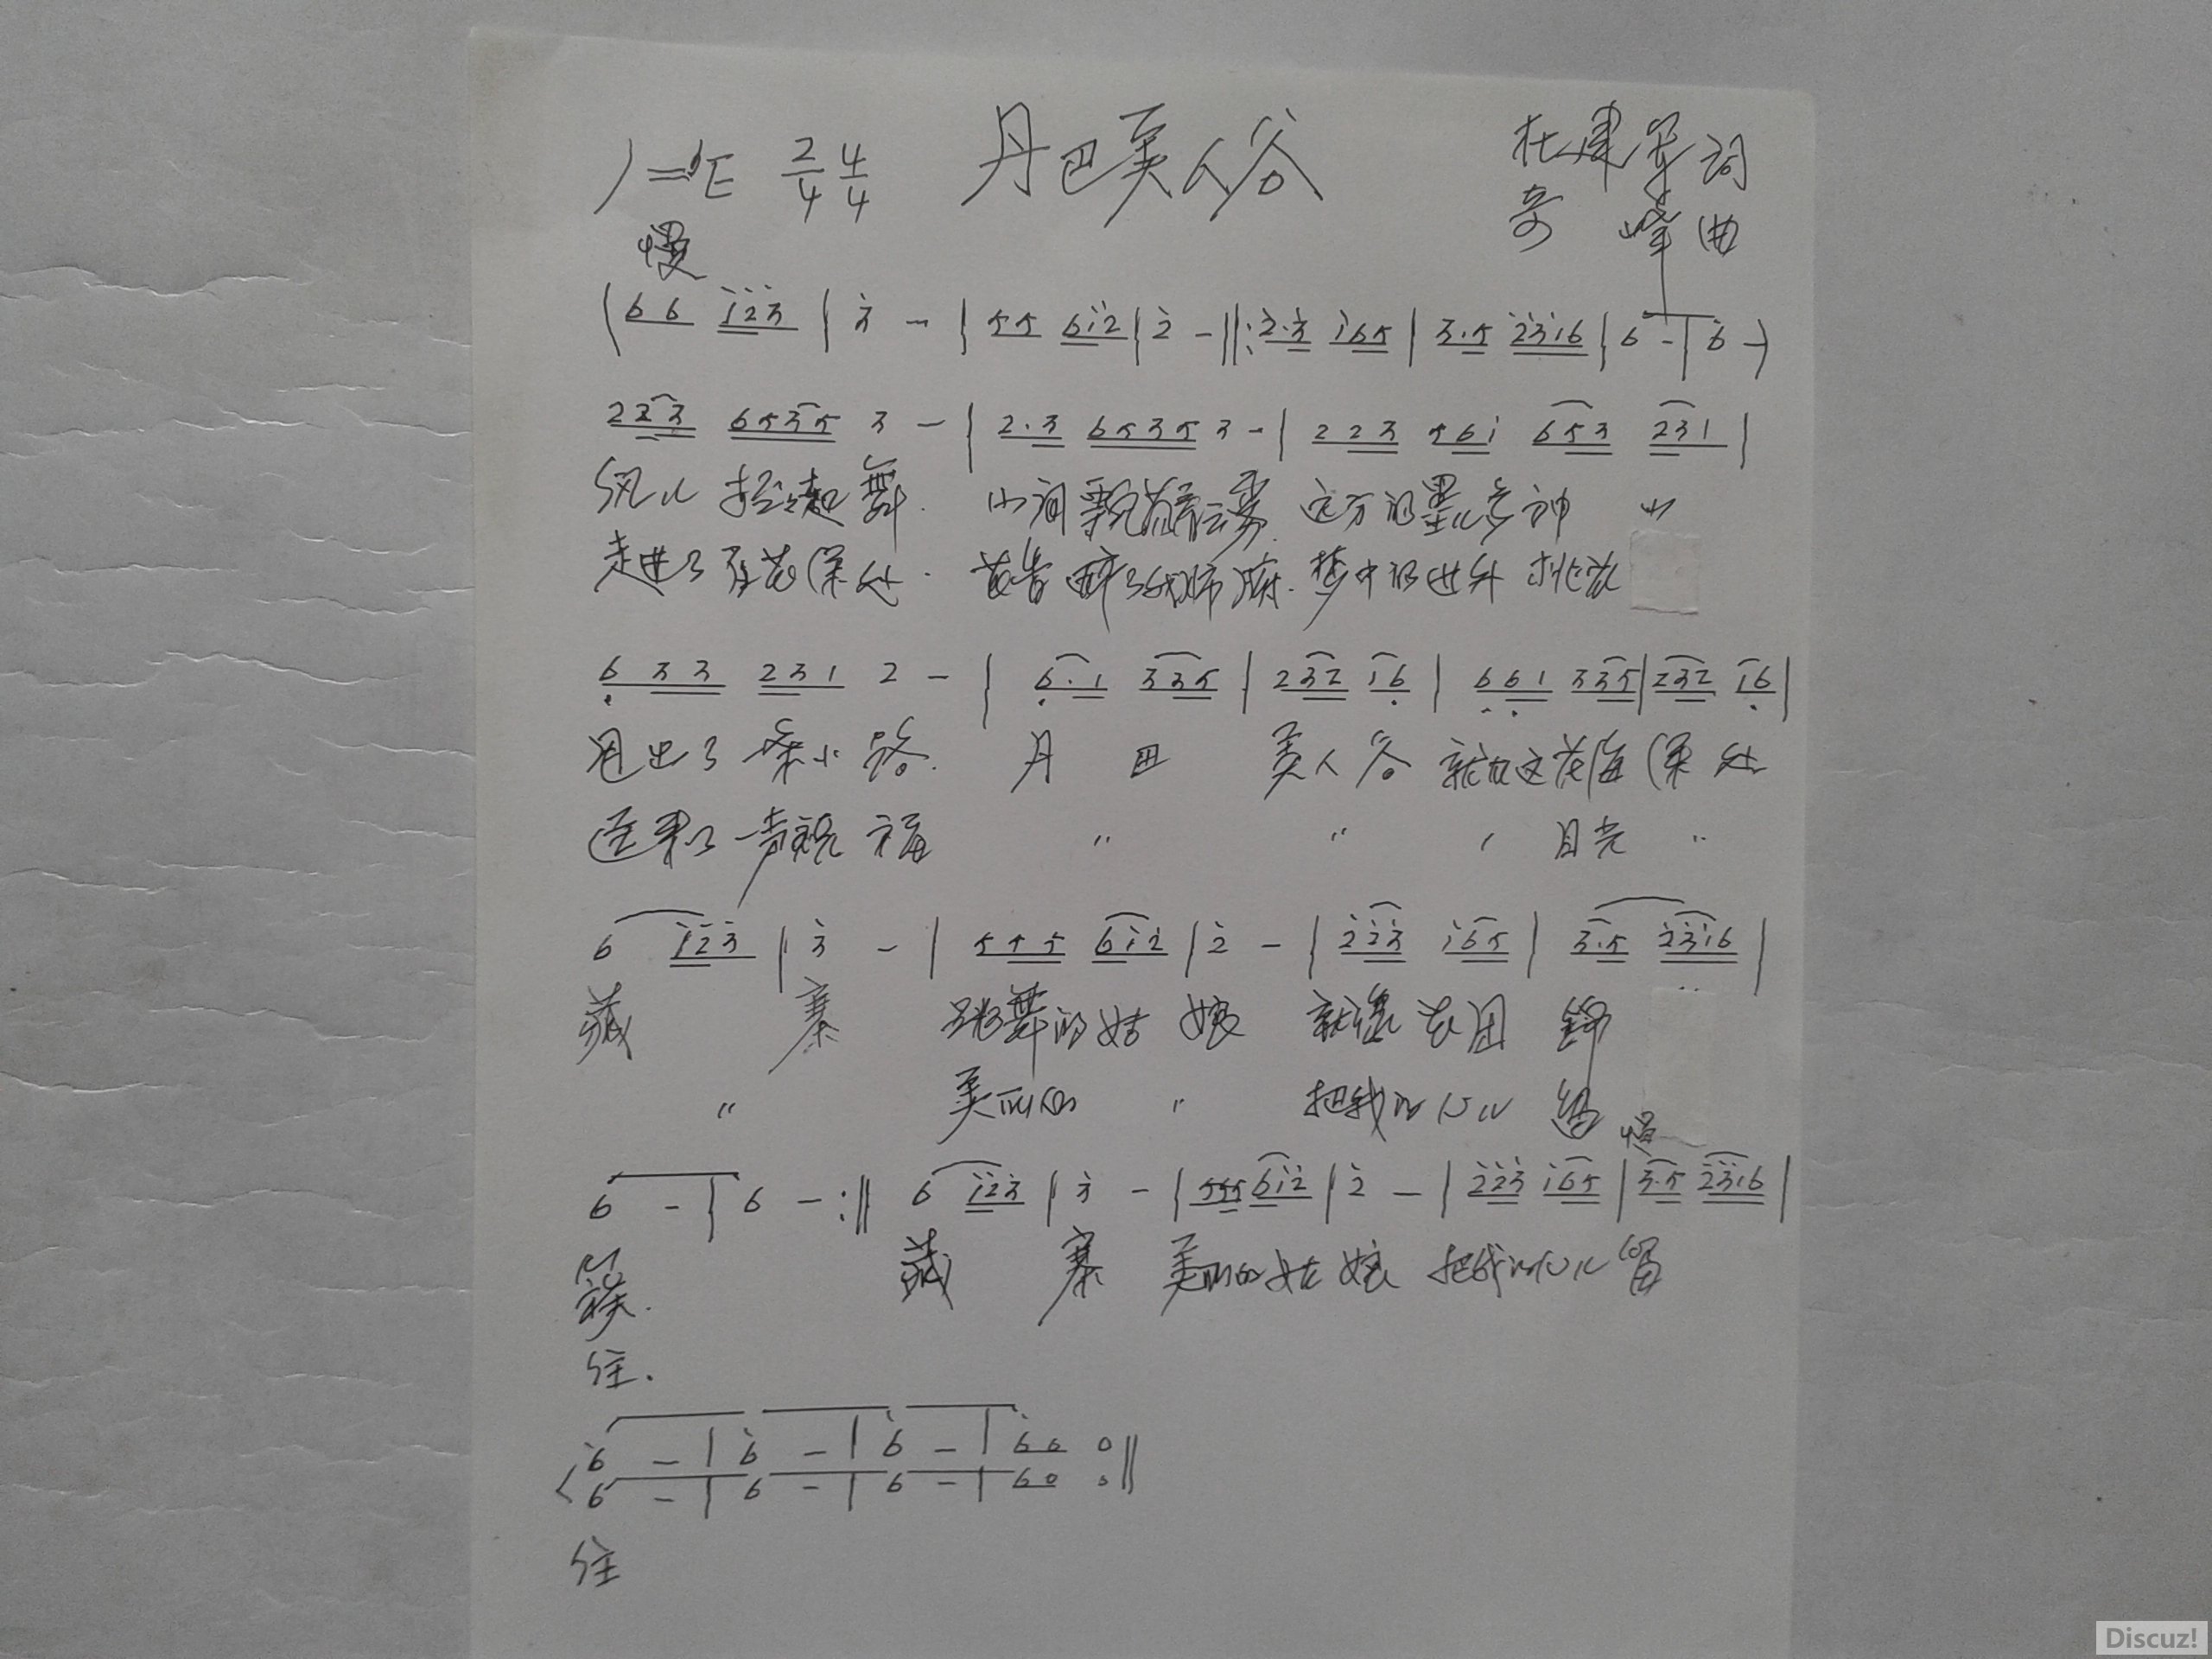 1=E 2/4 4/4 丹巴美人谷 杜建军词
慢 奇峰曲
(66 i̇2̇3̇ | 3̇ - | 55 6i̇2̇ | 2̇ - ‖: 2̇.3̇ i̇65 | 3.5 2̇3̇i̇6 | 6 - | 6 -)
223 6535 3 - | 2.3 6535 3 - | 223 56i̇ 653 231 |
风儿 起舞. 山涧飘着云雾. 这方的墨儿多神
走进了 花深处. 花香醉了我肺腑. 梦中的世外桃
6̣33 231 2 - | 6̣.1 335 | 232 16̣ | 6̣6̣1 335 | 232 16̣ |
甩出了 条小路. 丹 巴 美人谷 就在这花海深处
送来了一声祝福 〃 〃 〃 月光 〃
6 i̇2̇3̇ | 3̇ - | 555 6i̇2̇ | 2̇ - | 2̇2̇3̇ i̇65 | 3.5 2̇3̇i̇6 |
藏 寨 跳舞的姑 娘 就像花团 锦
〃 美丽的 〃 把我的心儿 留 慢
6 - | 6 - :‖ 6 i̇2̇3̇ | 3̇ - | 555 6i̇2̇ | 2̇ - | 2̇2̇3̇ i̇65 | 3.5 2̇3̇i̇6 |
簇. 藏 寨 美丽的姑 娘 把我的心儿 留
住.
6̇ - | 6̇ - | 6̇ - | 6̇0 0 :‖
6 - | 6 - | 6 - | 60 0 :‖
住
Discuz!